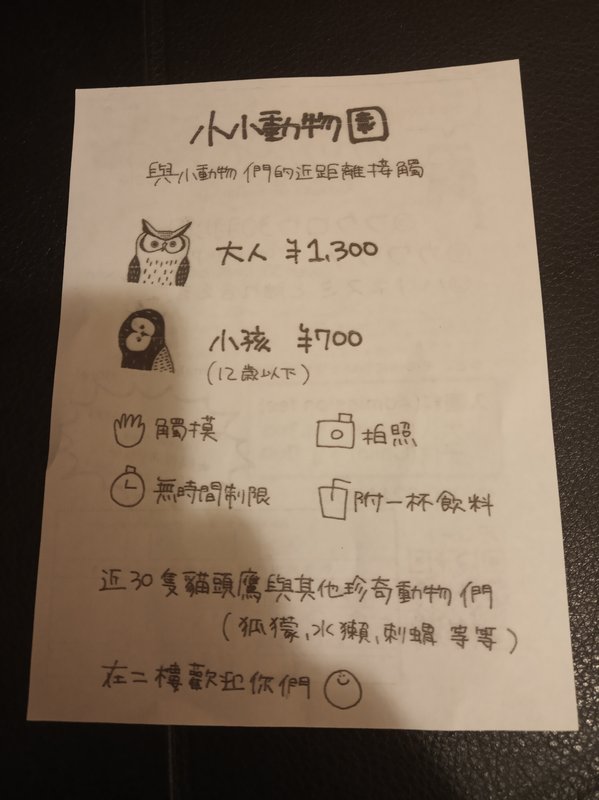 小小動物園
與小動物們的近距離接觸
大人 ¥1,300
小孩 ¥700
(12歲以下)
觸摸 拍照
無時間制限 附一杯飲料
近30隻貓頭鷹與其他珍奇動物們
(狐獴、水獺、刺蝟 等等)
在二樓歡迎你們